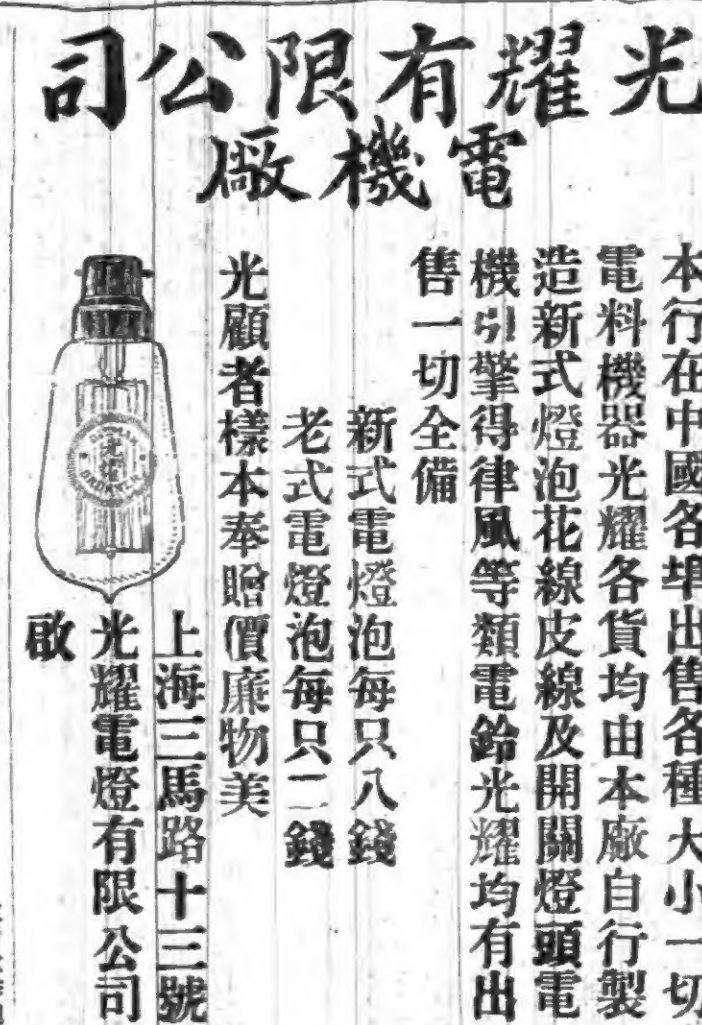 光耀有限公司
電機廠
本行在中國各埠出售各種大小一切
電料機器光耀各貨均由本廠自行製
造新式燈泡花線皮線及開關燈頭電
機引擎得律風等類電鈴光耀均有出
售一切全備
新式電燈泡每只八錢
老式電燈泡每只二錢
光顧者樣本奉贈價廉物美
光耀
上海三馬路十三號
光耀電燈有限公司
啟